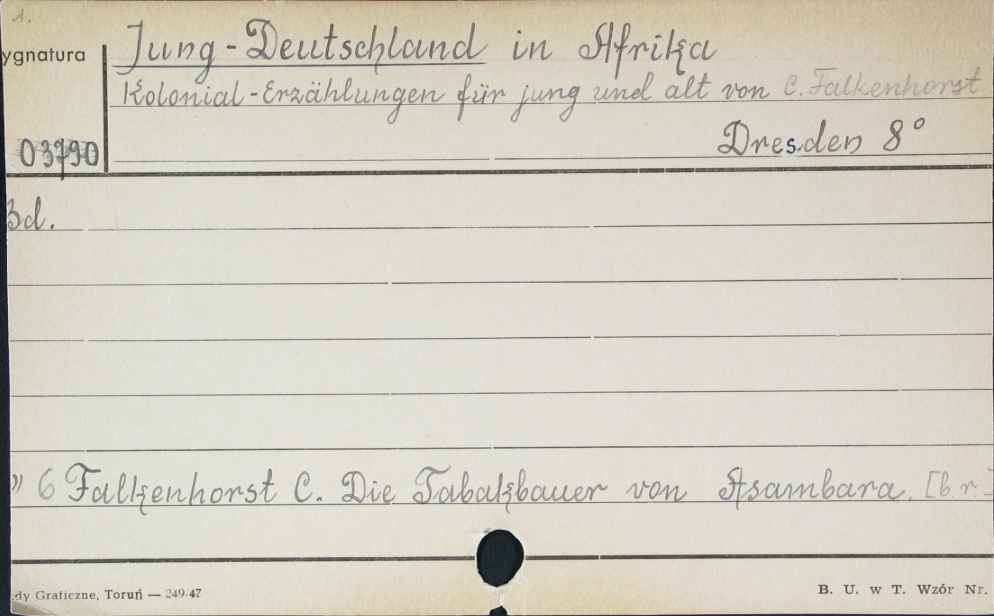 1.
ygnatura
Jung-Deutschland in Afrika
Kolonial-Erzählungen für jung und alt von C. Falkenhorst
03790
Dresden 8°
Bd.
" 6 Falkenhorst C. Die Tabakbauer von Asambara. [b.r.]
dy Graficzne, Toruń — 249-47
B. U. w T. Wzór Nr.